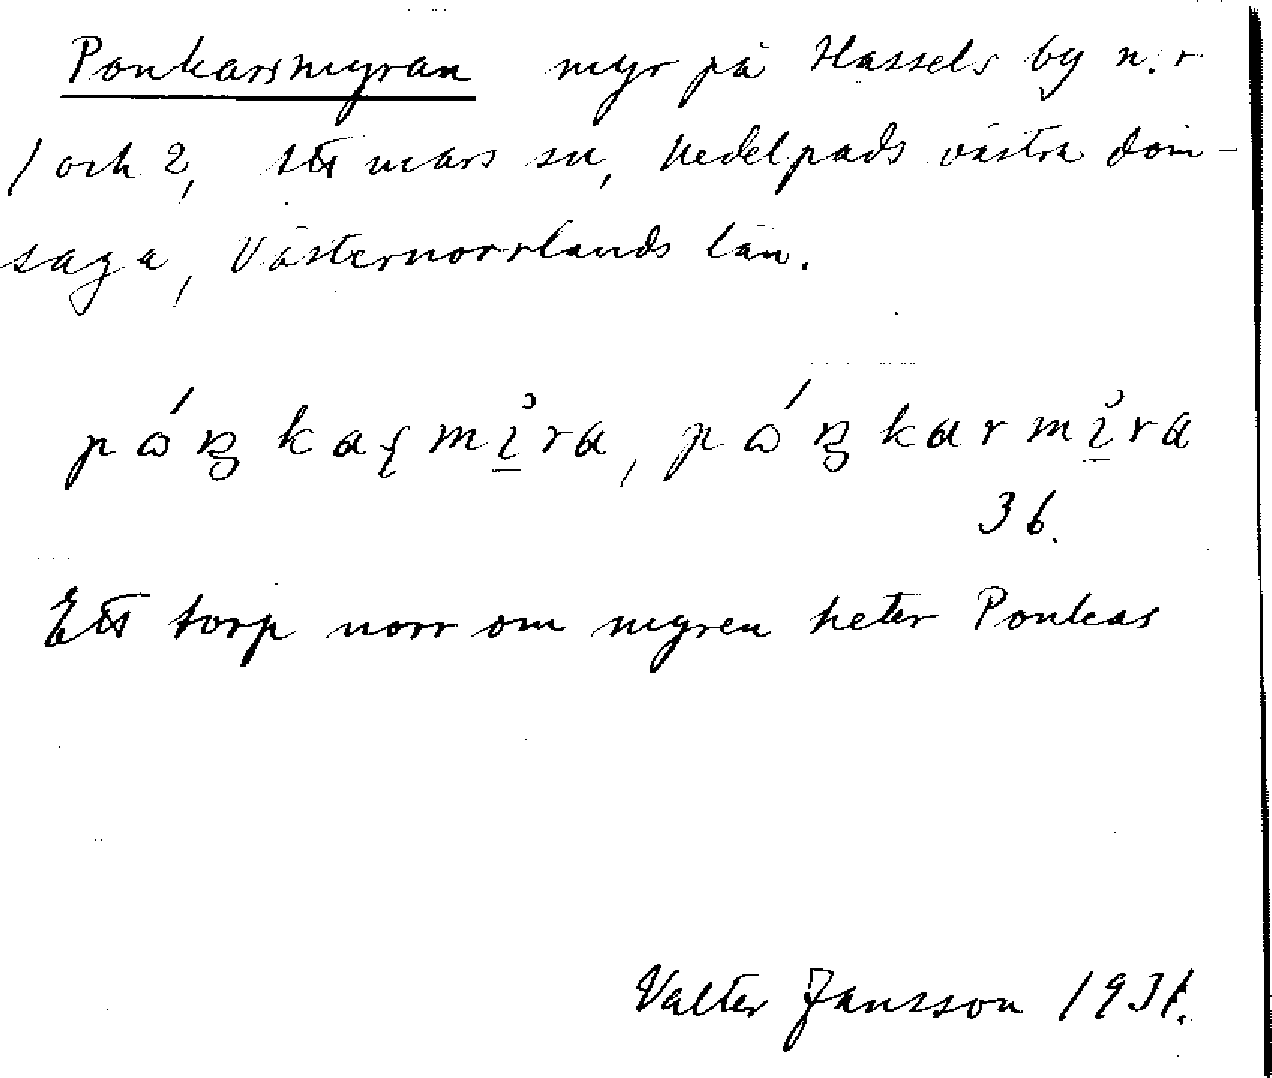 Ponkarsmyran myr på Hassels by n.r
1 och 2, Attmars sn, Medelpads västra dom-
saga, Västernorrlands län.
36.
Ett torp norr om myren heter Ponkas
Valter Jansson 1931.